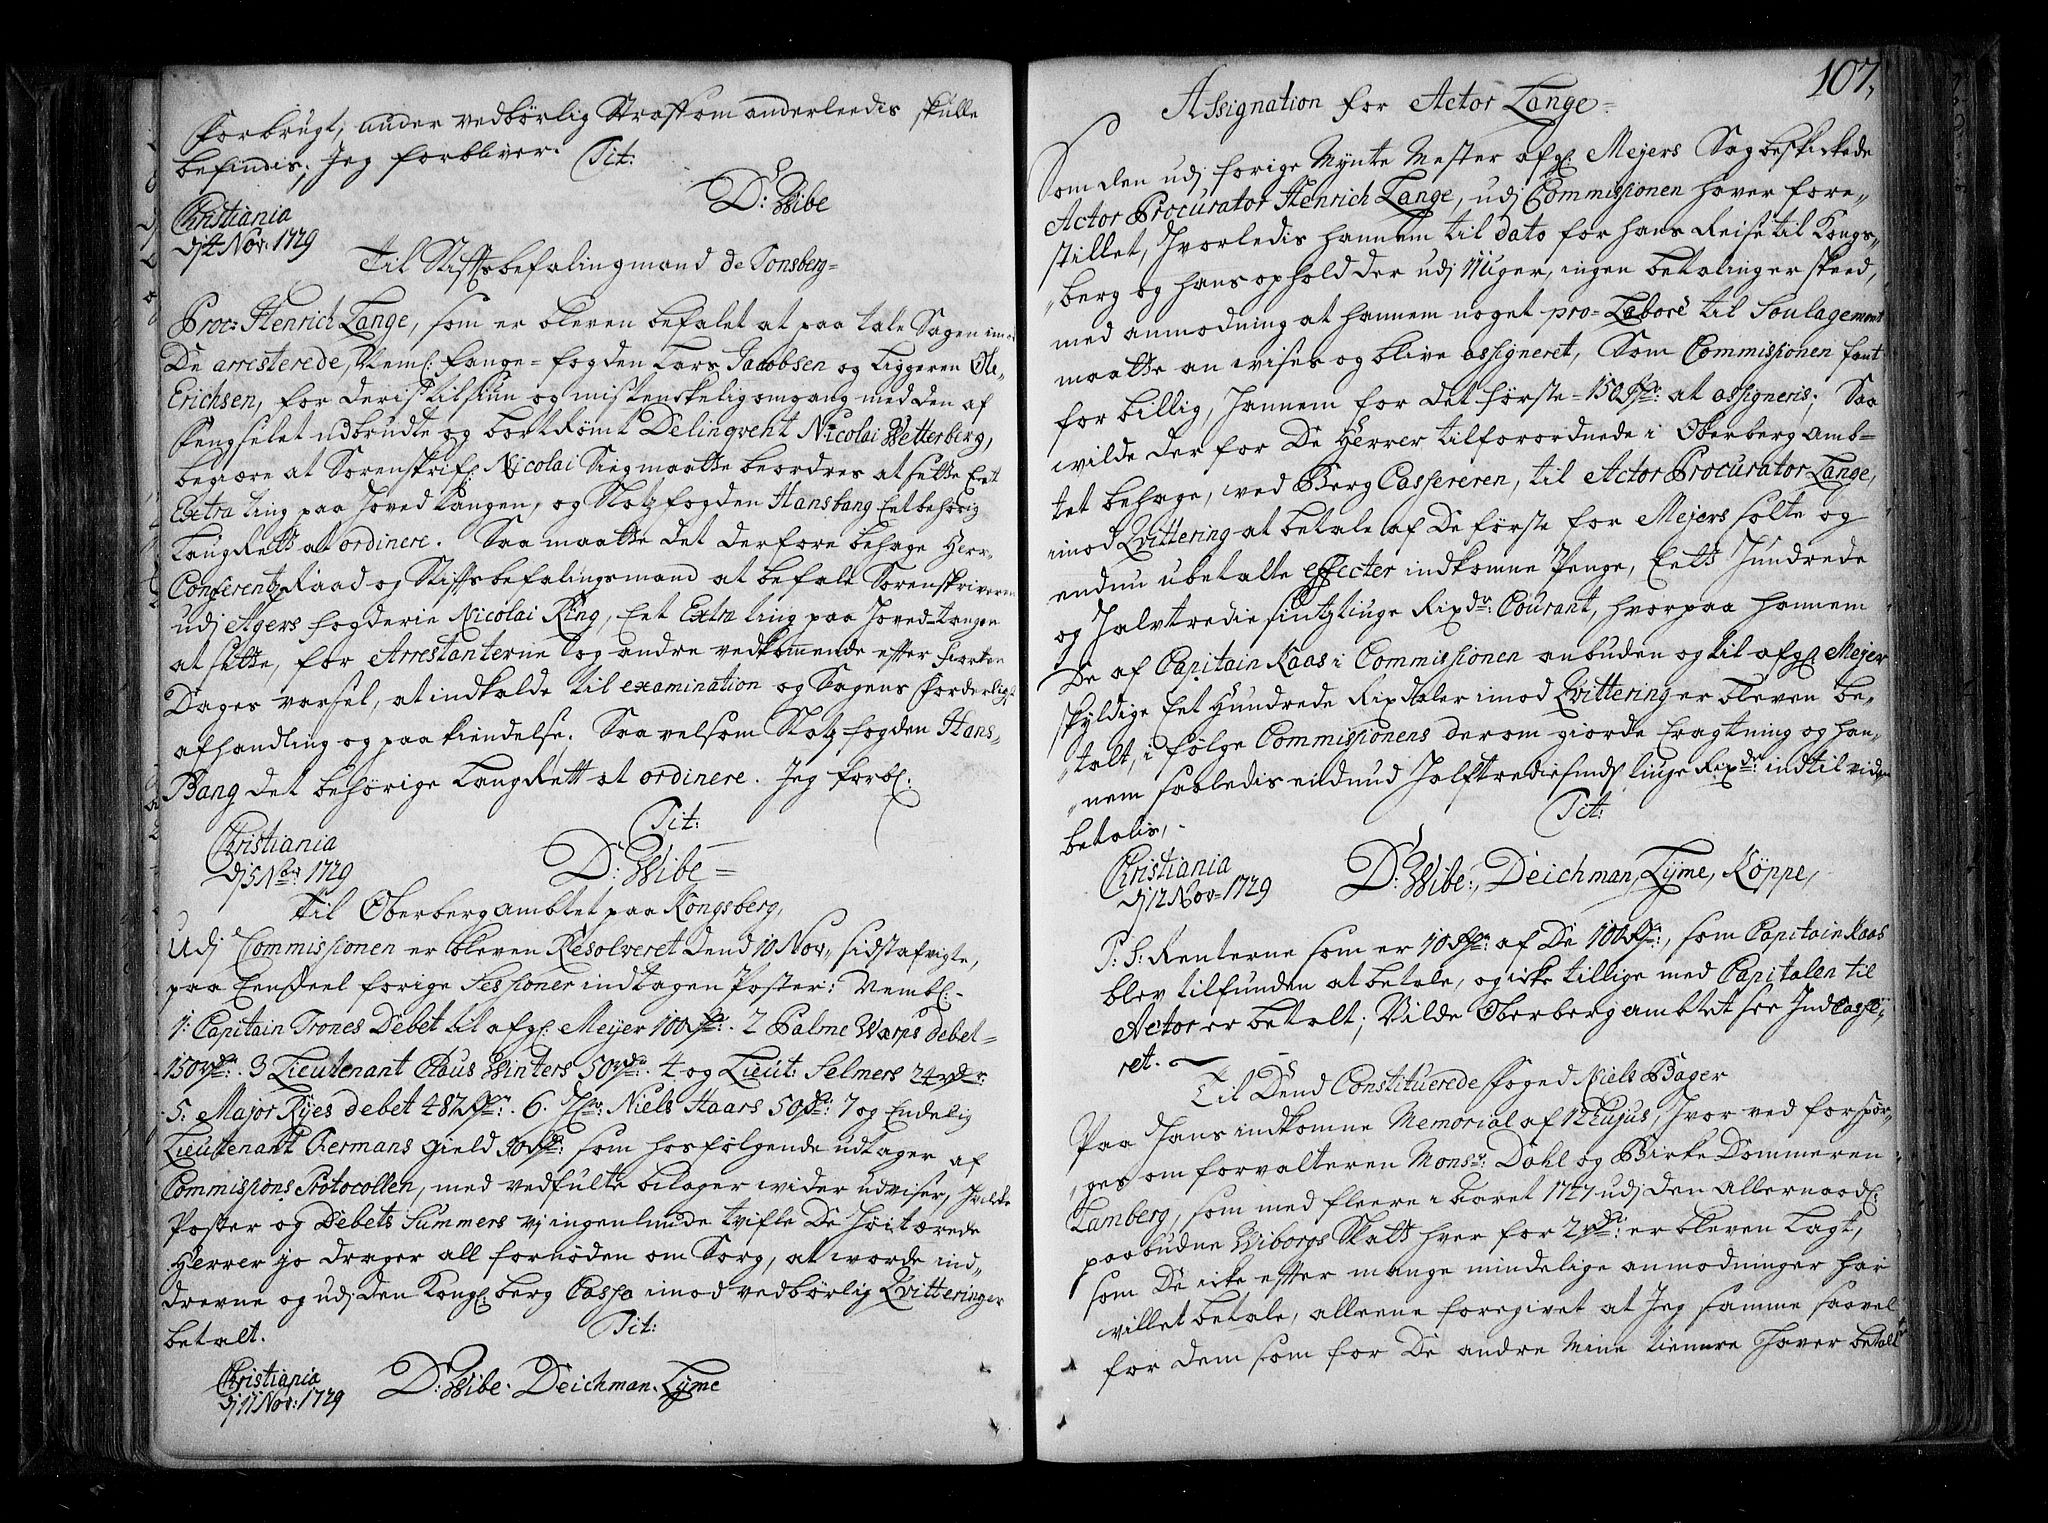 forbrugt, under vedbörlig Straff om anderleedis skulle
befindis, Jeg forbliver. Tit:
D: Wibe
Christiania
dj 4 Nov: 1729
Til Stiftsbefalingmand de Tonsberg=
Proc: Henrich Lange, som er bleven befalet at paa tale Sagen imod
De arresterede, Neml: Fange=fogden Lars Jacobsen og Liggeren Ole
Erichsen, for deris tilsiun og mistenskelig omgang med den af
fengselet udbrudte og bortrömt Delinqvent Nicolai Wetterberg,
begiære at Sorenskrif: Nicolai Sieg maatte beordres at sette Eet
Extra ting paa Hoved tangen, og Slotzfogden Hans bang Eet behörig
LaugRett at ordinere. Saa maatte det derfore behage Herr
ConferentzRaad og Stiftsbefalingsmand at befale Sorenskriveren
udj Agers fogderie Nicolai Ring, Eet Extra ting paa Hoved=tangen
at sette, for Arrestanterne og andre vedkommende efter fiorten
Dages varsel, at indkalde til examination og Sagens forderligst
afhandling og paa kiendelse. Saavelsom Slotzfogden Hans
Bang det behörige LaugRett at ordinere. Jeg forbl:
Tit:
Christiania
dj 5 Nbr 1729
D: Wibe=
Til Oberbergambtet paa Kongsberg,
Udj Commissionen er bleven Resolveret dend 10 Nov: sidstafvigte,
paa Eendeel forige Sessioner indtagen Poster: Nembl:
1: Capitain Trones Debet til afg: Meyer 100 Rdr. 2 Palme Warps debet=
150 rdr. 3 Lieutenant Claus Winters 50 rdr. 4 og Lieut: Selmers 24 rdr:
5: Major Ryes debet 482 Rdr. 6. Hr: Niels Haars 50 Rdr: 7 og Endelig
Lieutenant Hermans gield 30 Rdr: som hosfölgende udtager af
Commissions Protocollen, med vedfulte bilager vider udviser, hvilke
Poster og Debets Summers vj ingenlunde tvifle De Höitærede
Herrer jo drager all fornöden om Sorg, at worde ind,,
drevne og udj den Kongl: berg Cassa imod vedbörlig Qvitteringer
betalt. Tit:
Christiania
dj 11 Nov: 1729
D: Wibe. Deichman. Lyme
107,
Assignation for Actor Lange=
Som den udj forige Mynte Mester afg: Meyers Sag beskickede
Actor Procurator Henrich Lange, udj Commissionen haver fore,,
stillet, hvorledis hannem til dato for hans Reise til Kongs,,
,,berg og hans ophold der udj 11 Uger, ingen betalinger skeed,
med anmodning at hannem noget pro=Labore til Soulagement
maatte anvises og blive assigneret, Som Commissionen fant
for billig, hannem for det förste=150 Rdr: at assigneris; Saa
wilde derfor De Herrer tilforordnede i Oberberg amb=
tet behage, ved Berg Cassereren, til Actor Procurator Lange,
imod Qvittering at betale af De förste for Mejers solte og
endnu ubetalte effecter indkomne Penge, Eett Hundrede
og Halvtredie sintztiuge Rixdr: Courant, hvorpaa hannem
De af Capitain Kaas i Commissionen anbuden og til afg: Mejer
skyldige Eet Hundrede Rixdaler imod Qvittering er bleven be,,
,,talt, i fölge Commissionens derom giorde Eragtning og han,,
,,nem saaledis endnu Halftrediesinds tiuge Rixdr: indtil vider
betalis,
Tit:
Christiania
dj 12 Nov= 1729
D: Wibe:, Deichman, Lyme, Köppe,
P: S: Renterne som er 10 Rdr: af De 100 Rdr:, som Capitain Kaas
blev tilfunden at betale, og icke tillige med Capitalen til
Actor er betalt; Vilde Oberbergambtet see Indcasse,,
ret.
Til Dend Constituerede foged Niels Bager
Paa hans indkomne Memorial af 12 hujus, hvor ved forspör,,
,,ges om forvalteren Monsr: Dahl og Birke Dommeren
Lamberg, som med fleere i Aaret 1727 udj den Allernaadl:
paabudne Wiborgs Skatt hver for 2 rdr: er bleven Lagt,
som De icke efter mange mindelige anmodninger har
villet betale, alleene foregivet at Jeg samme saavel
for dem som for De andre Mine tienere haver betalt